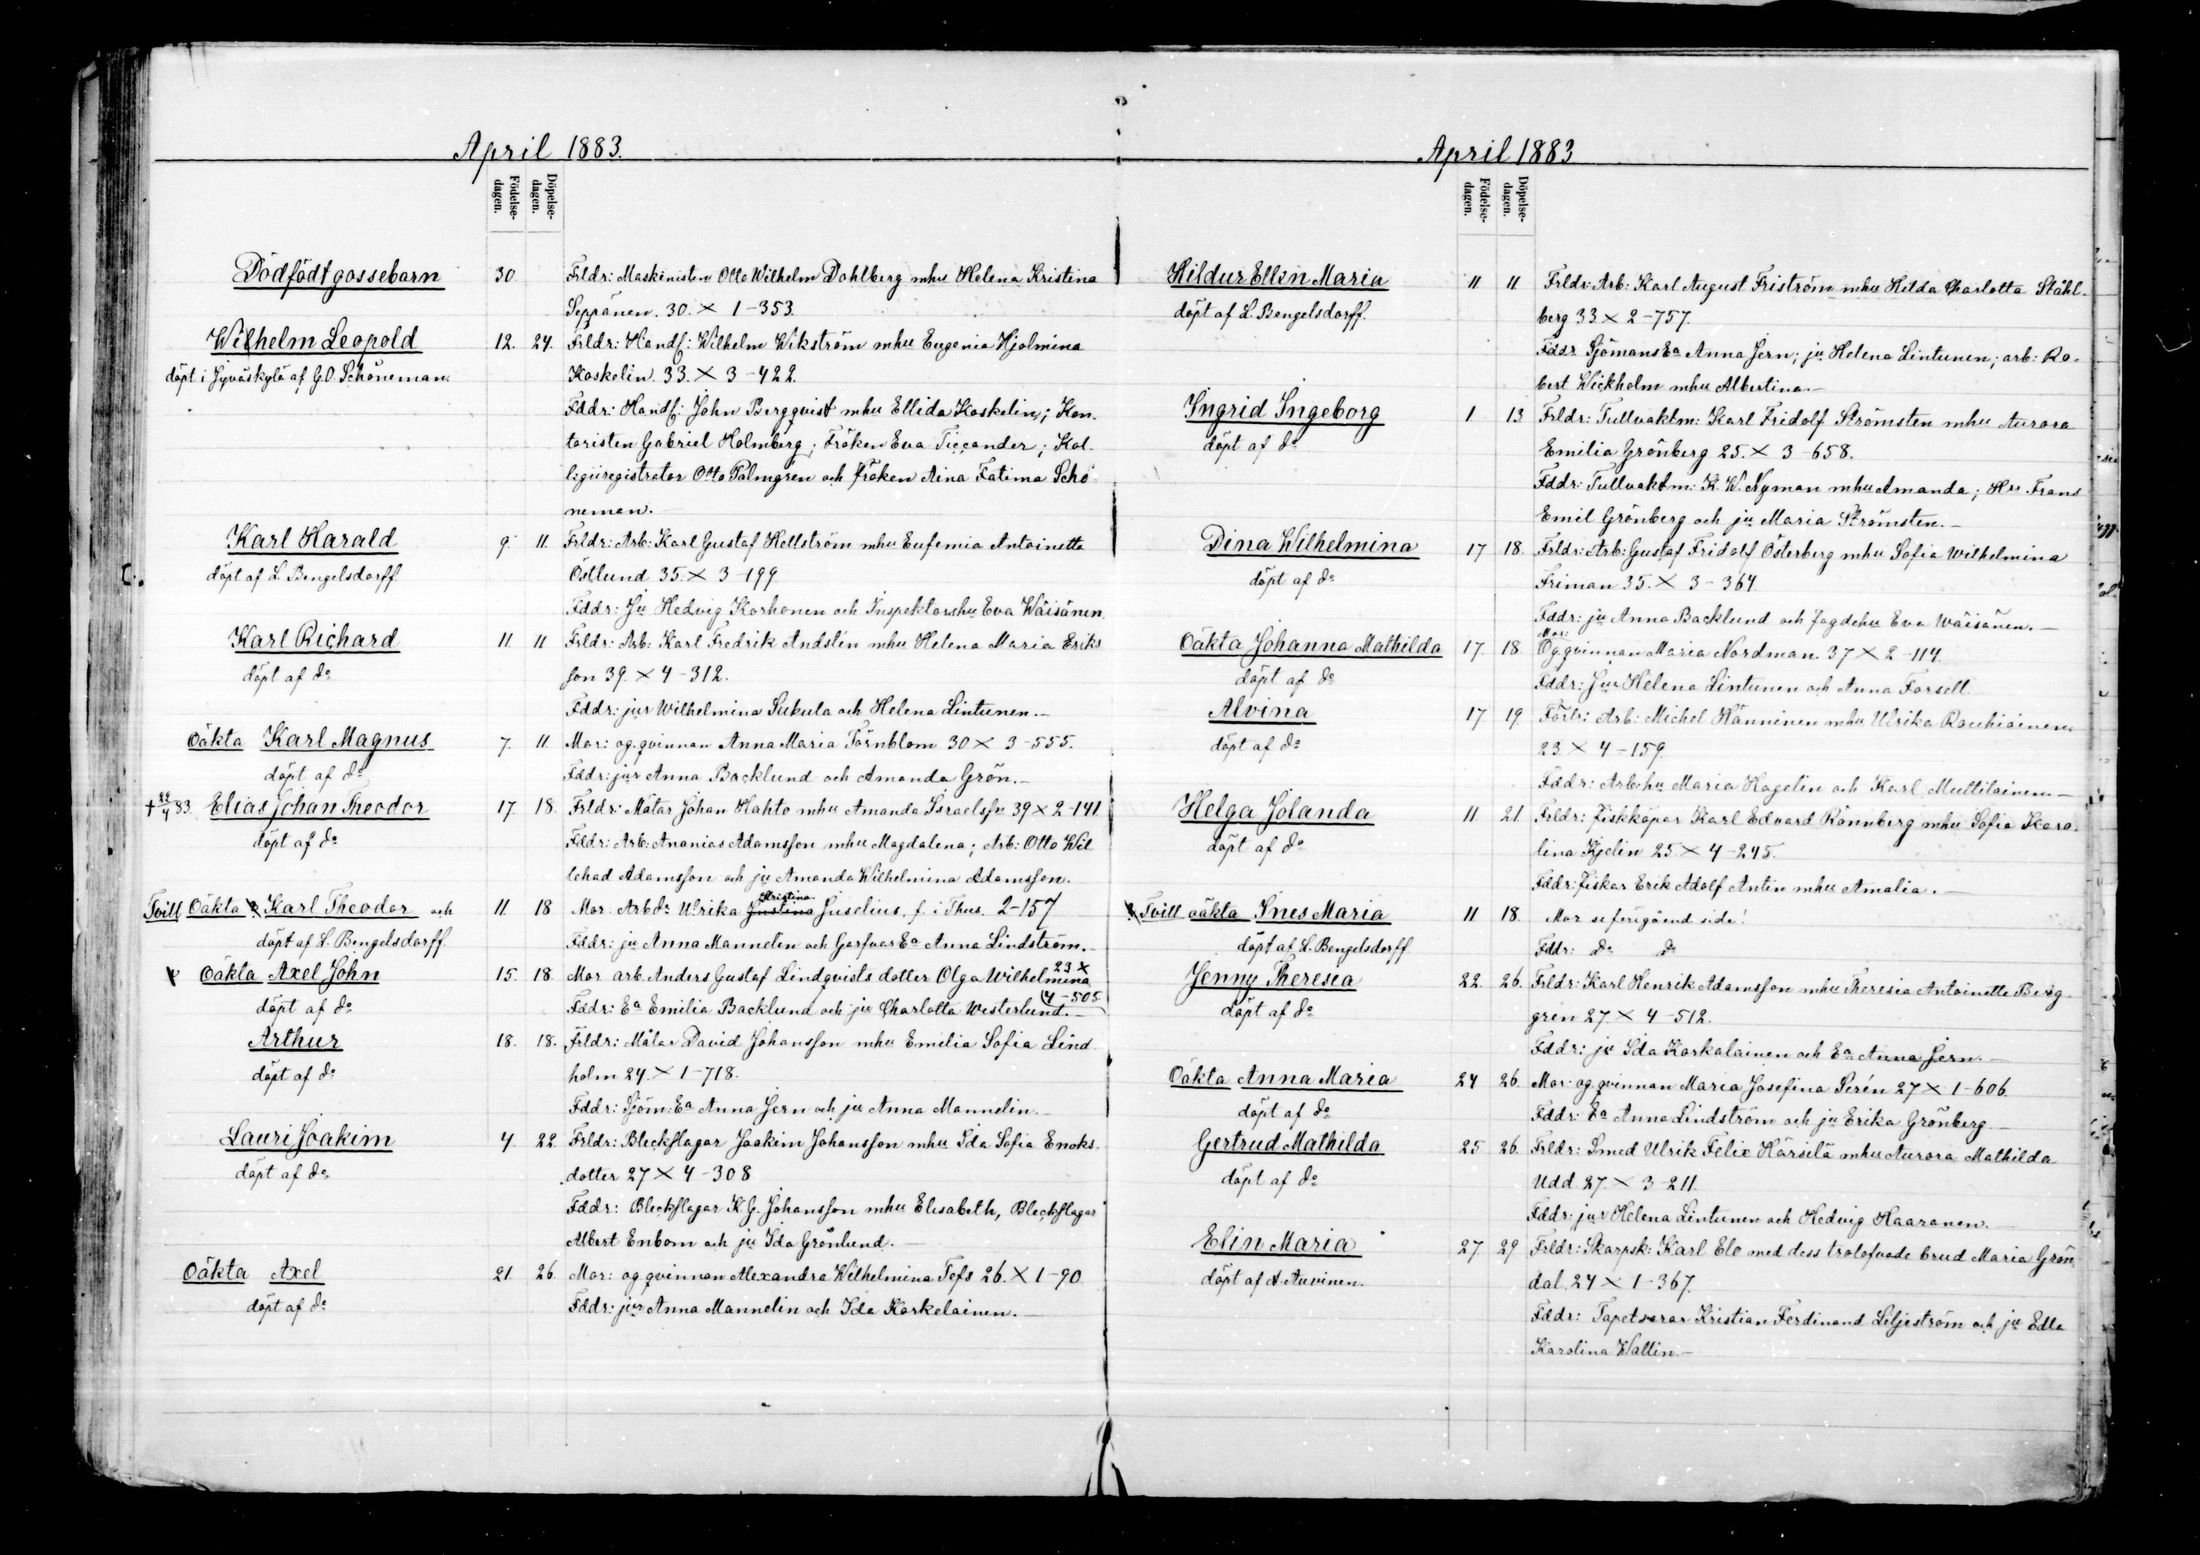 April 1883.
Födelse-dagen.
Döpelse-dagen.
Dödfödt gossebarn 30 Frldr: Maskinisten Otto Wilhelm Dahlberg mhu Helena Kristina
Seppänen. 30. × 1-353.
Wilhelm Leopold 12. 24. Frldr: Handl: Wilhelm Wikström mhu Eugenia Hjalmina
döpt i Jyväskylä af G.O. Schöneman. Koskelin. 33. × 3-422.
Fddr: Handl: John Bergqvist mhu Ellida Koskelin; Kon-
toristen Gabriel Holmberg; Fröken Eva Ticcander; Kol-
legiiregistrator Otto Palmgren och fröken Aina Fatima Schö-
neman.
Karl Harald 9. 11. Frldr: Arb: Karl Gustaf Hellström mhu Eufemia Antoinetta
döpt af L. Bengelsdorff Östlund 35. × 3-199.
Fddr: Ju Hedvig Korhonen och Inspektorshu Eva Wäisänen.
Karl Richard 11. 11 Frldr: Arb: Karl Fredrik Andstén mhu Helena Maria Eriks
döpt af do son 39. × 4-312.
Fddr: jur Wilhelmina Sukula och Helena Lintunen.
Oäkta Karl Magnus 7. 11. Mor: og. qvinnan Anna Maria Törnblom 30 × 3-555.
döpt af do Fddr: jur Anna Backlund och Amanda Grön.
† 22/4 83. Elias Johan Theodor 17. 18. Frldr: Målar Johan Hahto mhu Amanda Israelsfn 39 × 2-141
döpt af do Fddr: Arb: Ananias Adamsson mhu Magdalena; Arb: Otto Wil
lehad Adamsson och ju Amanda Wilhelmina Adamsson.
Tvill Oäkta Karl Theodor och 11. 18 Mor. Arb do Ulrika Justina Kristina Juselius, f. i Thus. 2-157
döpt af L. Bengelsdorff. Fddr: ju Anna Mannelin och Garfvar Ea Anna Lindström.
Oäkta Axel John 15. 18. Mor arb. Anders Gustaf Lindqvists dotter Olga Wilhelmina 23 ×
döpt af do Fddr: Ea Emilia Backlund och ju Charlotta Westerlund. 4-505.
Arthur 18. 18. Frldr: Målar David Johansson mhu Emilia Sofia Lind
döpt af do holm 24. × 1-718.
Fddr: Sjöm: Ea Anna Jern och ju Anna Mannelin.
Lauri Joakim 4. 22. Frldr: Bleckslagar Joakim Johansson mhu Ida Sofia Enoks-
döpt af do dotter 27 × 4-308
Fddr: Bleckslagar K.G. Johansson mhu Elisabeth, Bleckslagar
Albert Enbom och ju Ida Grönlund.
Oäkta Axel 21. 26. Mor: og. qvinnan Alexandra Wilhelmina Tefs 26. × 1-90
döpt af do Fddr: jur Anna Mannelin och Ida Karkelainen.
April 1883
Födelse-dagen.
Döpelse-dagen.
Hildur Ellen Maria 11 11 Frldr: Arb: Karl August Friström mhu Hilda Charlotta Ståhl-
döpt af L. Bengelsdorff. berg 33 × 2-757.
Fddr Sjömans Ea Anna Jern; ju Helena Lintunen; arb: Ro-
bert Wickholm mhu Albertina.
Ingrid Ingeborg 1 13 Frldr: Tullvaktm: Karl Fridolf Strömsten mhu Aurora
döpt af do Emilia Grönberg 25. × 3-658.
Fddr: Tullvaktm: K. W. Nyman mhu Amanda; Hrr Frans
Emil Grönberg och ju Maria Strömsten.
Dina Wilhelmina 17 18. Frldr: Arb: Gustaf Fridolf Österberg mhu Sofia Wilhelmina
döpt af do Friman 35. × 3-364.
Fddr: ju Anna Backlund och Jagdehu Eva Wäisänen.
Oäkta Johanna Mathilda 17. 18. Mor: Og. qvinnan Maria Nordman. 37 × 2-114.
döpt af do Fddr: Jur Helena Lintunen och Anna Forsell.
Alvina 17 19. Förlr: Arb: Michel Hänninen mhu Ulrika Rauhiainen.
döpt af do 23. × 4-159.
Fddr: Arbshu Maria Hagelin och Karl Multilainen.
Helga Jolanda 11 21 Frldr: fiskköpar Karl Edvard Rönnberg mhu Sofia Karo-
döpt af do lina Kjelin 25 × 4-245.
Fddr: fiskar Erik Adolf Antin mhu Amalia.
Tvill oäkta Ines Maria 11 18. Mor se föregående sida!
döpt af L. Bengelsdorff Fddr: do do
Jenny Theresia 22. 26. Frldr: Karl Henrik Adamsson mhu Theresia Antoinette Berg
döpt af do gren 27 × 4-512.
Fddr: ju Ida Karkalainen och Ea Anna Jern.
Oäkta Anna Maria 24 26. Mor: og. qvinnan Maria Josefina Serén 27 × 1-606.
döpt af do Fddr: Ea Anna Lindström och ju Erika Grönberg.
Gertrud Mathilda 25 26. Frldr: Smed Ulrik Felix Härsilä mhu Aurora Mathilda
döpt af do Udd 27. × 3-211.
Fddr: jur Helena Lintunen och Hedvig Haaranen.
Elin Maria 27 29 Frldr: Skarpsk: Karl Elo med dess trolofvade brud Maria Grön
döpt af A. Auvinen. dal. 24 × 1-367.
Fddr: Tapetserar Kristian Ferdinand Liljeström och ju Edla
Karolina Wallin.